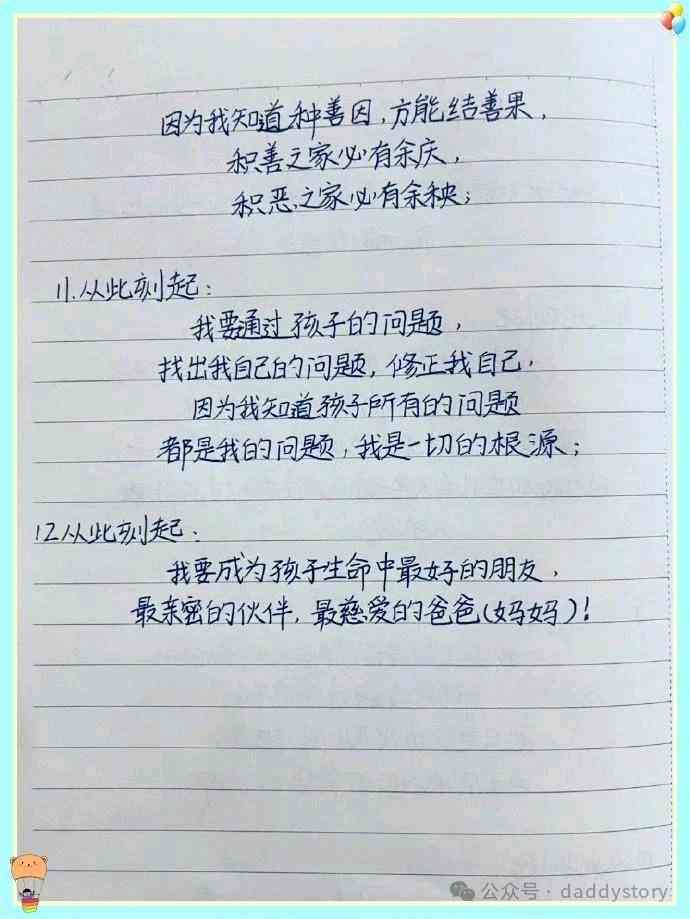 因为我知道种善因，方能结善果，
积善之家必有余庆，
积恶之家必有余秧；
11.从此刻起：
我要通过孩子的问题，
找出我自己的问题，修正我自己，
因为我知道孩子所有的问题
都是我的问题，我是一切的根源；
12.从此刻起：
我要成为孩子生命中最好的朋友，
最亲密的伙伴，最慈爱的爸爸(妈妈)！
公众号·daddystory